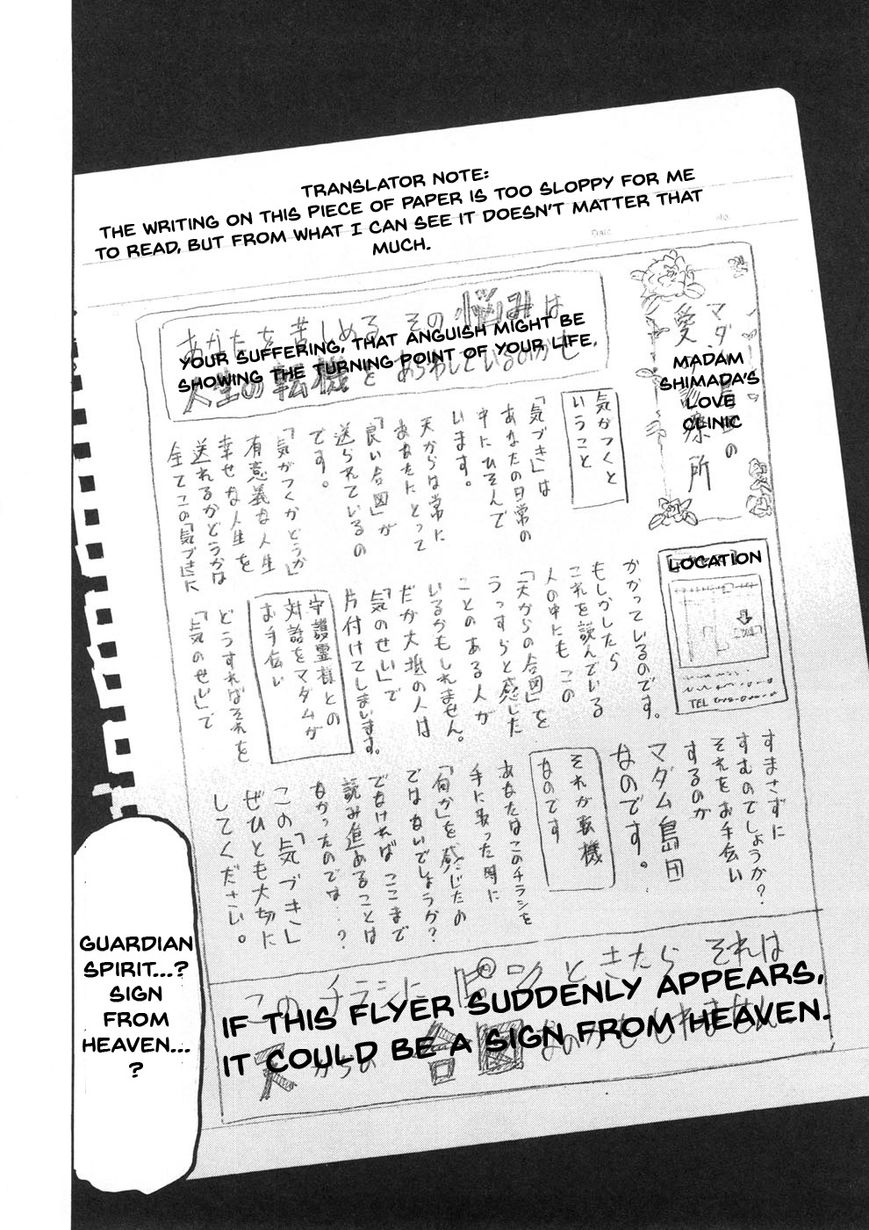 TRANSLATOR NOTE:
THE WRITING ON THIS PIECE OF PAPER IS TOO SLOPPY FOR ME
TO READ, BUT FROM WHAT I CAN SEE IT DOESN'T MATTER THAT
MUCH.
マダ
の
愛
療所
MADAM
SHIMADA'S
LOVE
CLINIC
あなたを苦しめる その悩みは
人生の転機をあらわしているのかも
YOUR SUFFERING, THAT ANGUISH MIGHT BE
SHOWING THE TURNING POINT OF YOUR LIFE.
気がつくと
いうこと
「気づき」は
あなたの日常の
中にひそんで
います。
天からは常に
あなたにとって
「良い合図」が
送られているの
です。
「気がつくかどうか」
有意義な人生
幸せな人生を
送れるかどうかは
全てこの「気づき」に
LOCATION
TEL
かかっているのです。
もしかしたら
これを読んでいる
人の中にもこの
「天からの合図」を
うっすらと感じた
ことのある人が
いるかもしれません。
だが大抵の人は
「気のせい」で
片付けてしまいます。
守護霊様との
対話をマダムが
お手伝い
どうすればそれを
「気のせい」で
すまさずに
すむのでしょうか?
それをお手伝い
するのが
マダム島田
なのです。
それが転機
なのです
あなたはこのチラシを
手に取った時に
「何か」を感じたの
ではないでしょうか?
でなければここまで
読み進めることは
なかったのでは…?
この「気づき」
ぜひとも大切に
してください。
このチラシに ピンときたら それは
天からの 合図なのかもしれません
IF THIS FLYER SUDDENLY APPEARS,
IT COULD BE A SIGN FROM HEAVEN.
GUARDIAN
SPIRIT...?
SIGN
FROM
HEAVEN...
?